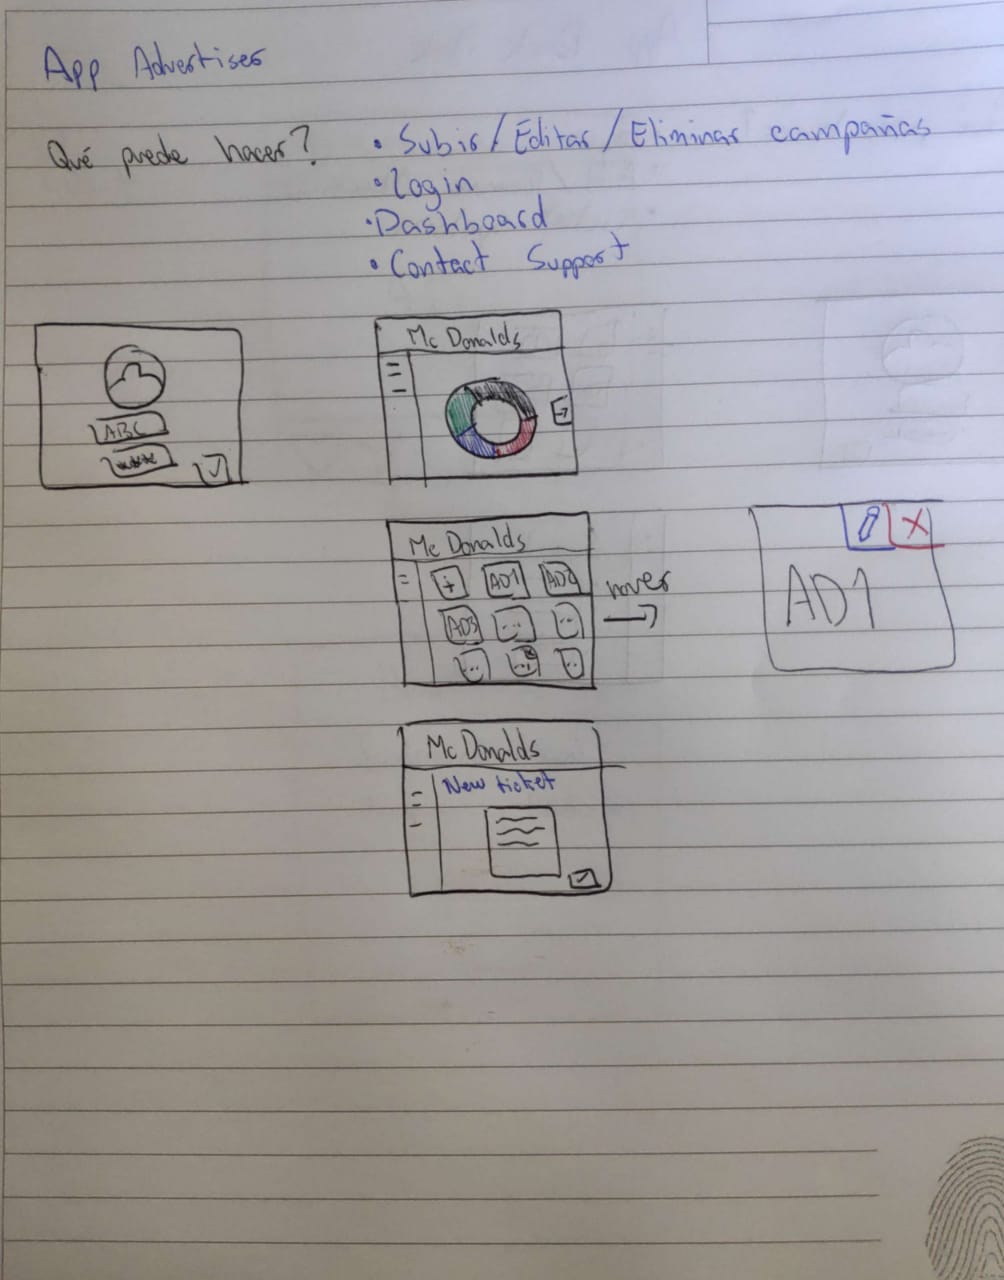 App Advertiser
Qué puede hacer?
• Subir/Editar/Eliminar campañas
• Login
• Dashboard
• Contact Support
ABC
****
Mc Donalds
Mc Donalds
+ AD1 AD2
AD3 ... ...
... ... ...
AD1
Mc Donalds
New ticket